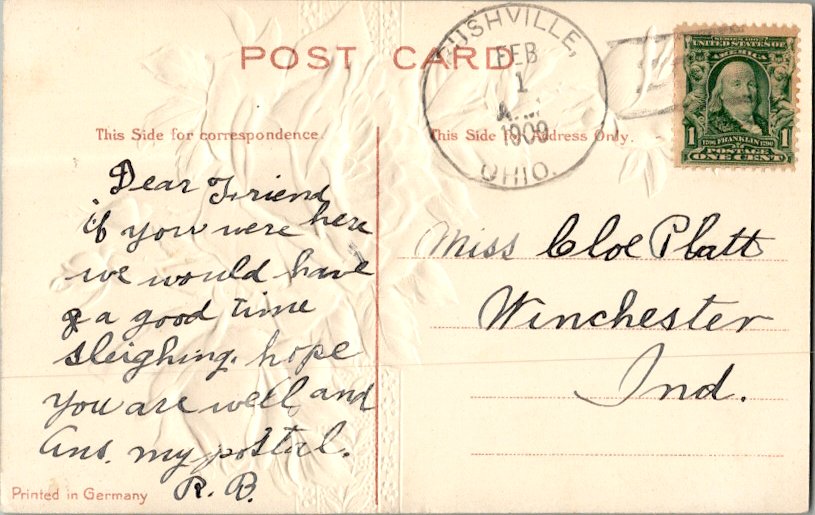 POST CARD
RUSHVILLE,
FEB
1
A.M.
1909
OHIO.
SERIES 1902
UNITED STATES OF
AMERICA
1 1706 FRANKLIN 1790 1
POSTAGE
ONE CENT
This Side for correspondence.
This Side for Address Only.
Dear Friend
if you were here
we would have
a good time
sleighing. hope
you are well and
Ans. my postal.
R. B.
Miss Cloe Platt
Winchester
Ind.
Printed in Germany